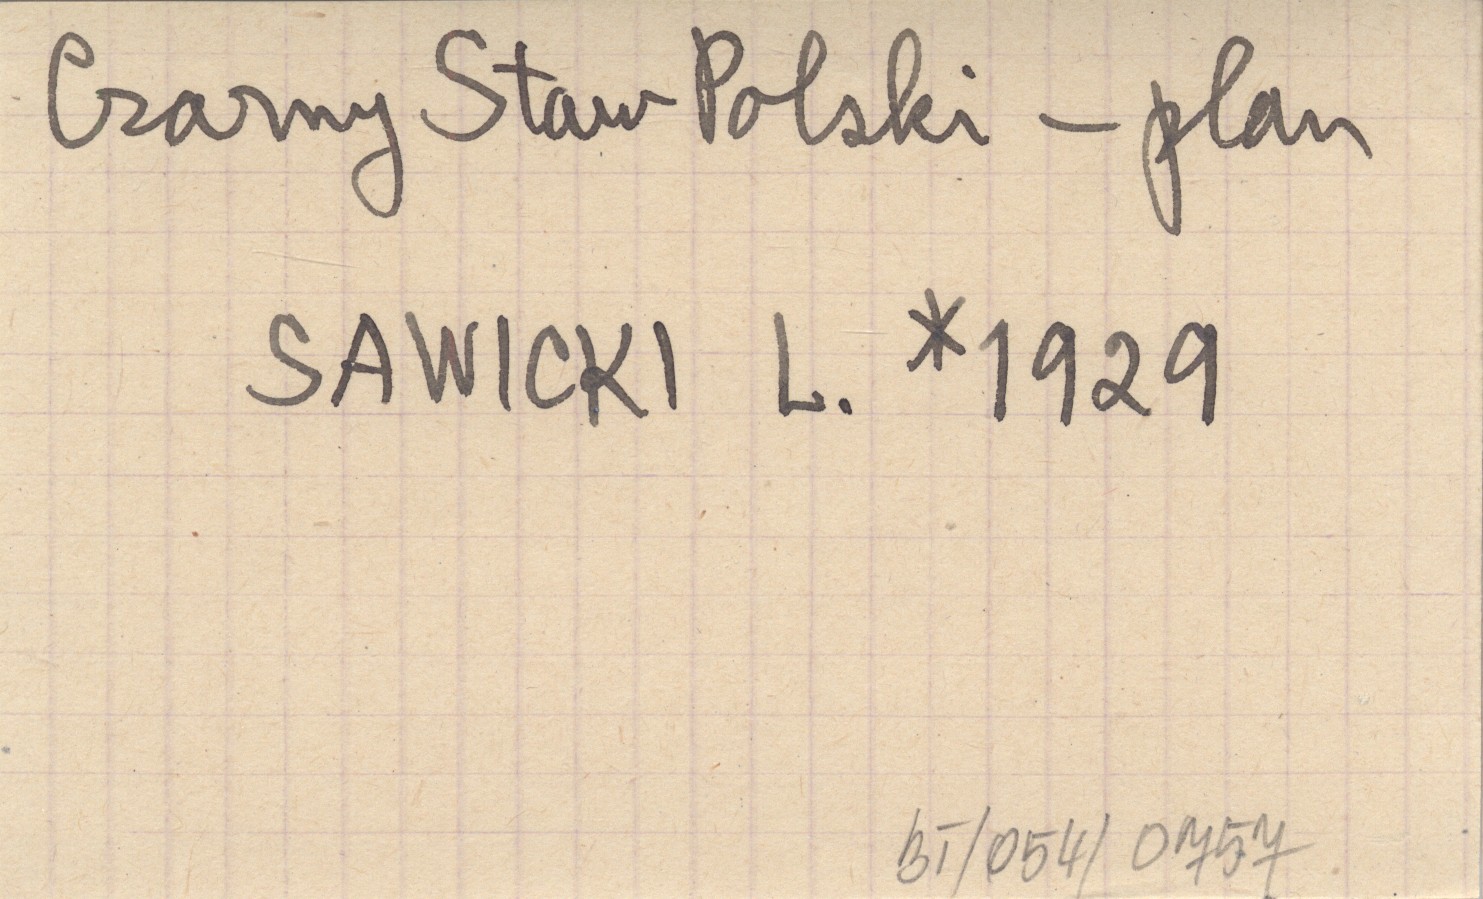 Czarny Staw Polski – plan
SAWICKI L. *1929
BT/054/0757